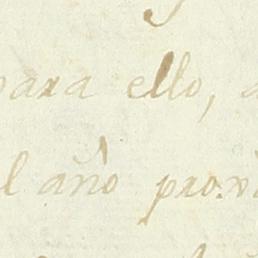 para ello, a
l año pro.x